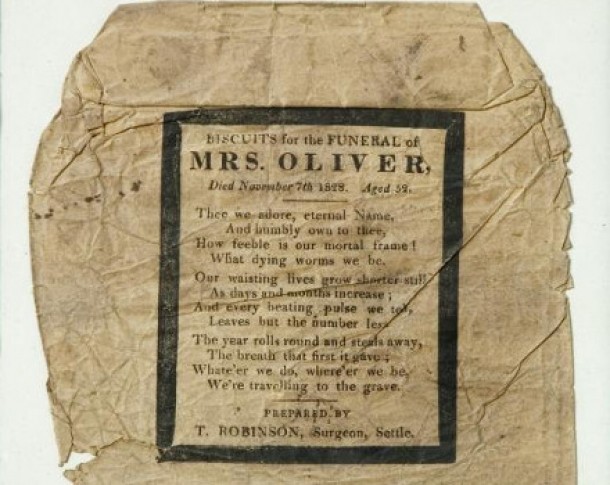 BISCUITS for the FUNERAL of
MRS. OLIVER,
Died November 7th 1828. Aged 52.
Thee we adore, eternal Name,
And humbly own to thee,
How feeble is our mortal frame!
What dying worms we be.
Our waisting lives grow shorter still
As days and months increase;
And every beating pulse we tell,
Leaves but the number less
The year rolls round and steals away,
The breath that first it gave;
Whate'er we do, where'er we be,
We're travelling to the grave.
PREPARED BY
T. ROBINSON, Surgeon, Settle.